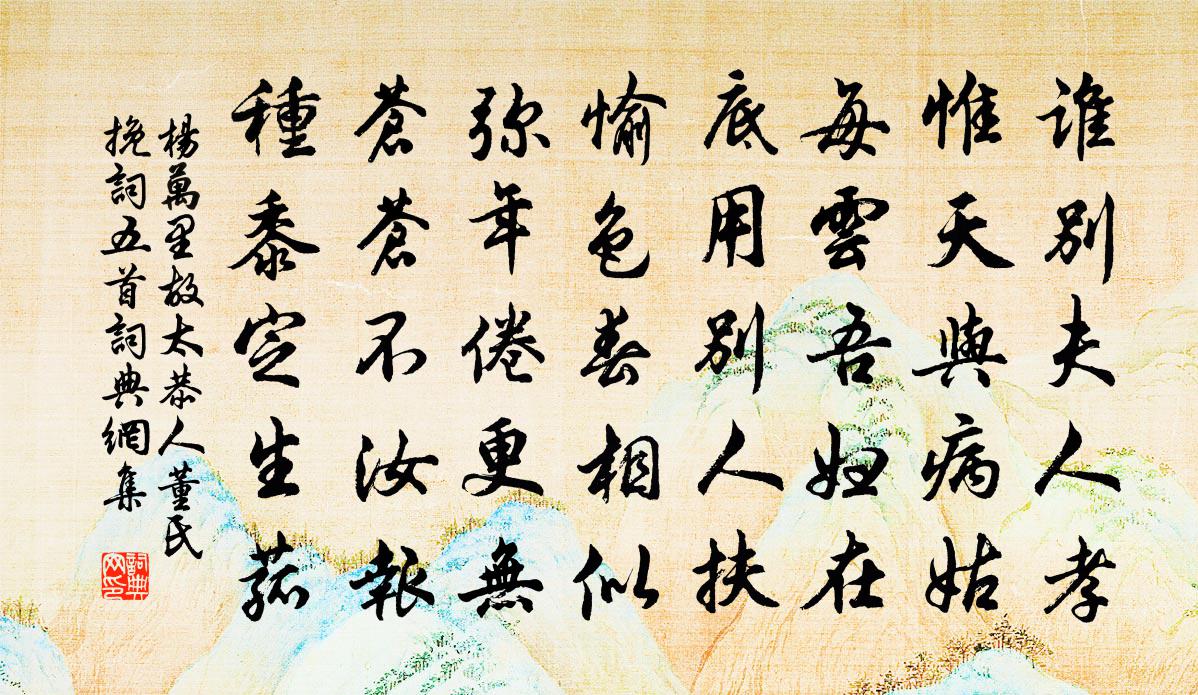 誰別夫人孝
惟天與病姑
每雲吾婦在
底用別人扶
愉色春相似
弥年倦更無
蒼蒼不汝報
種黍定生菰
楊萬里故太恭人董氏
挽詞五首詞典網集
詞典
网印